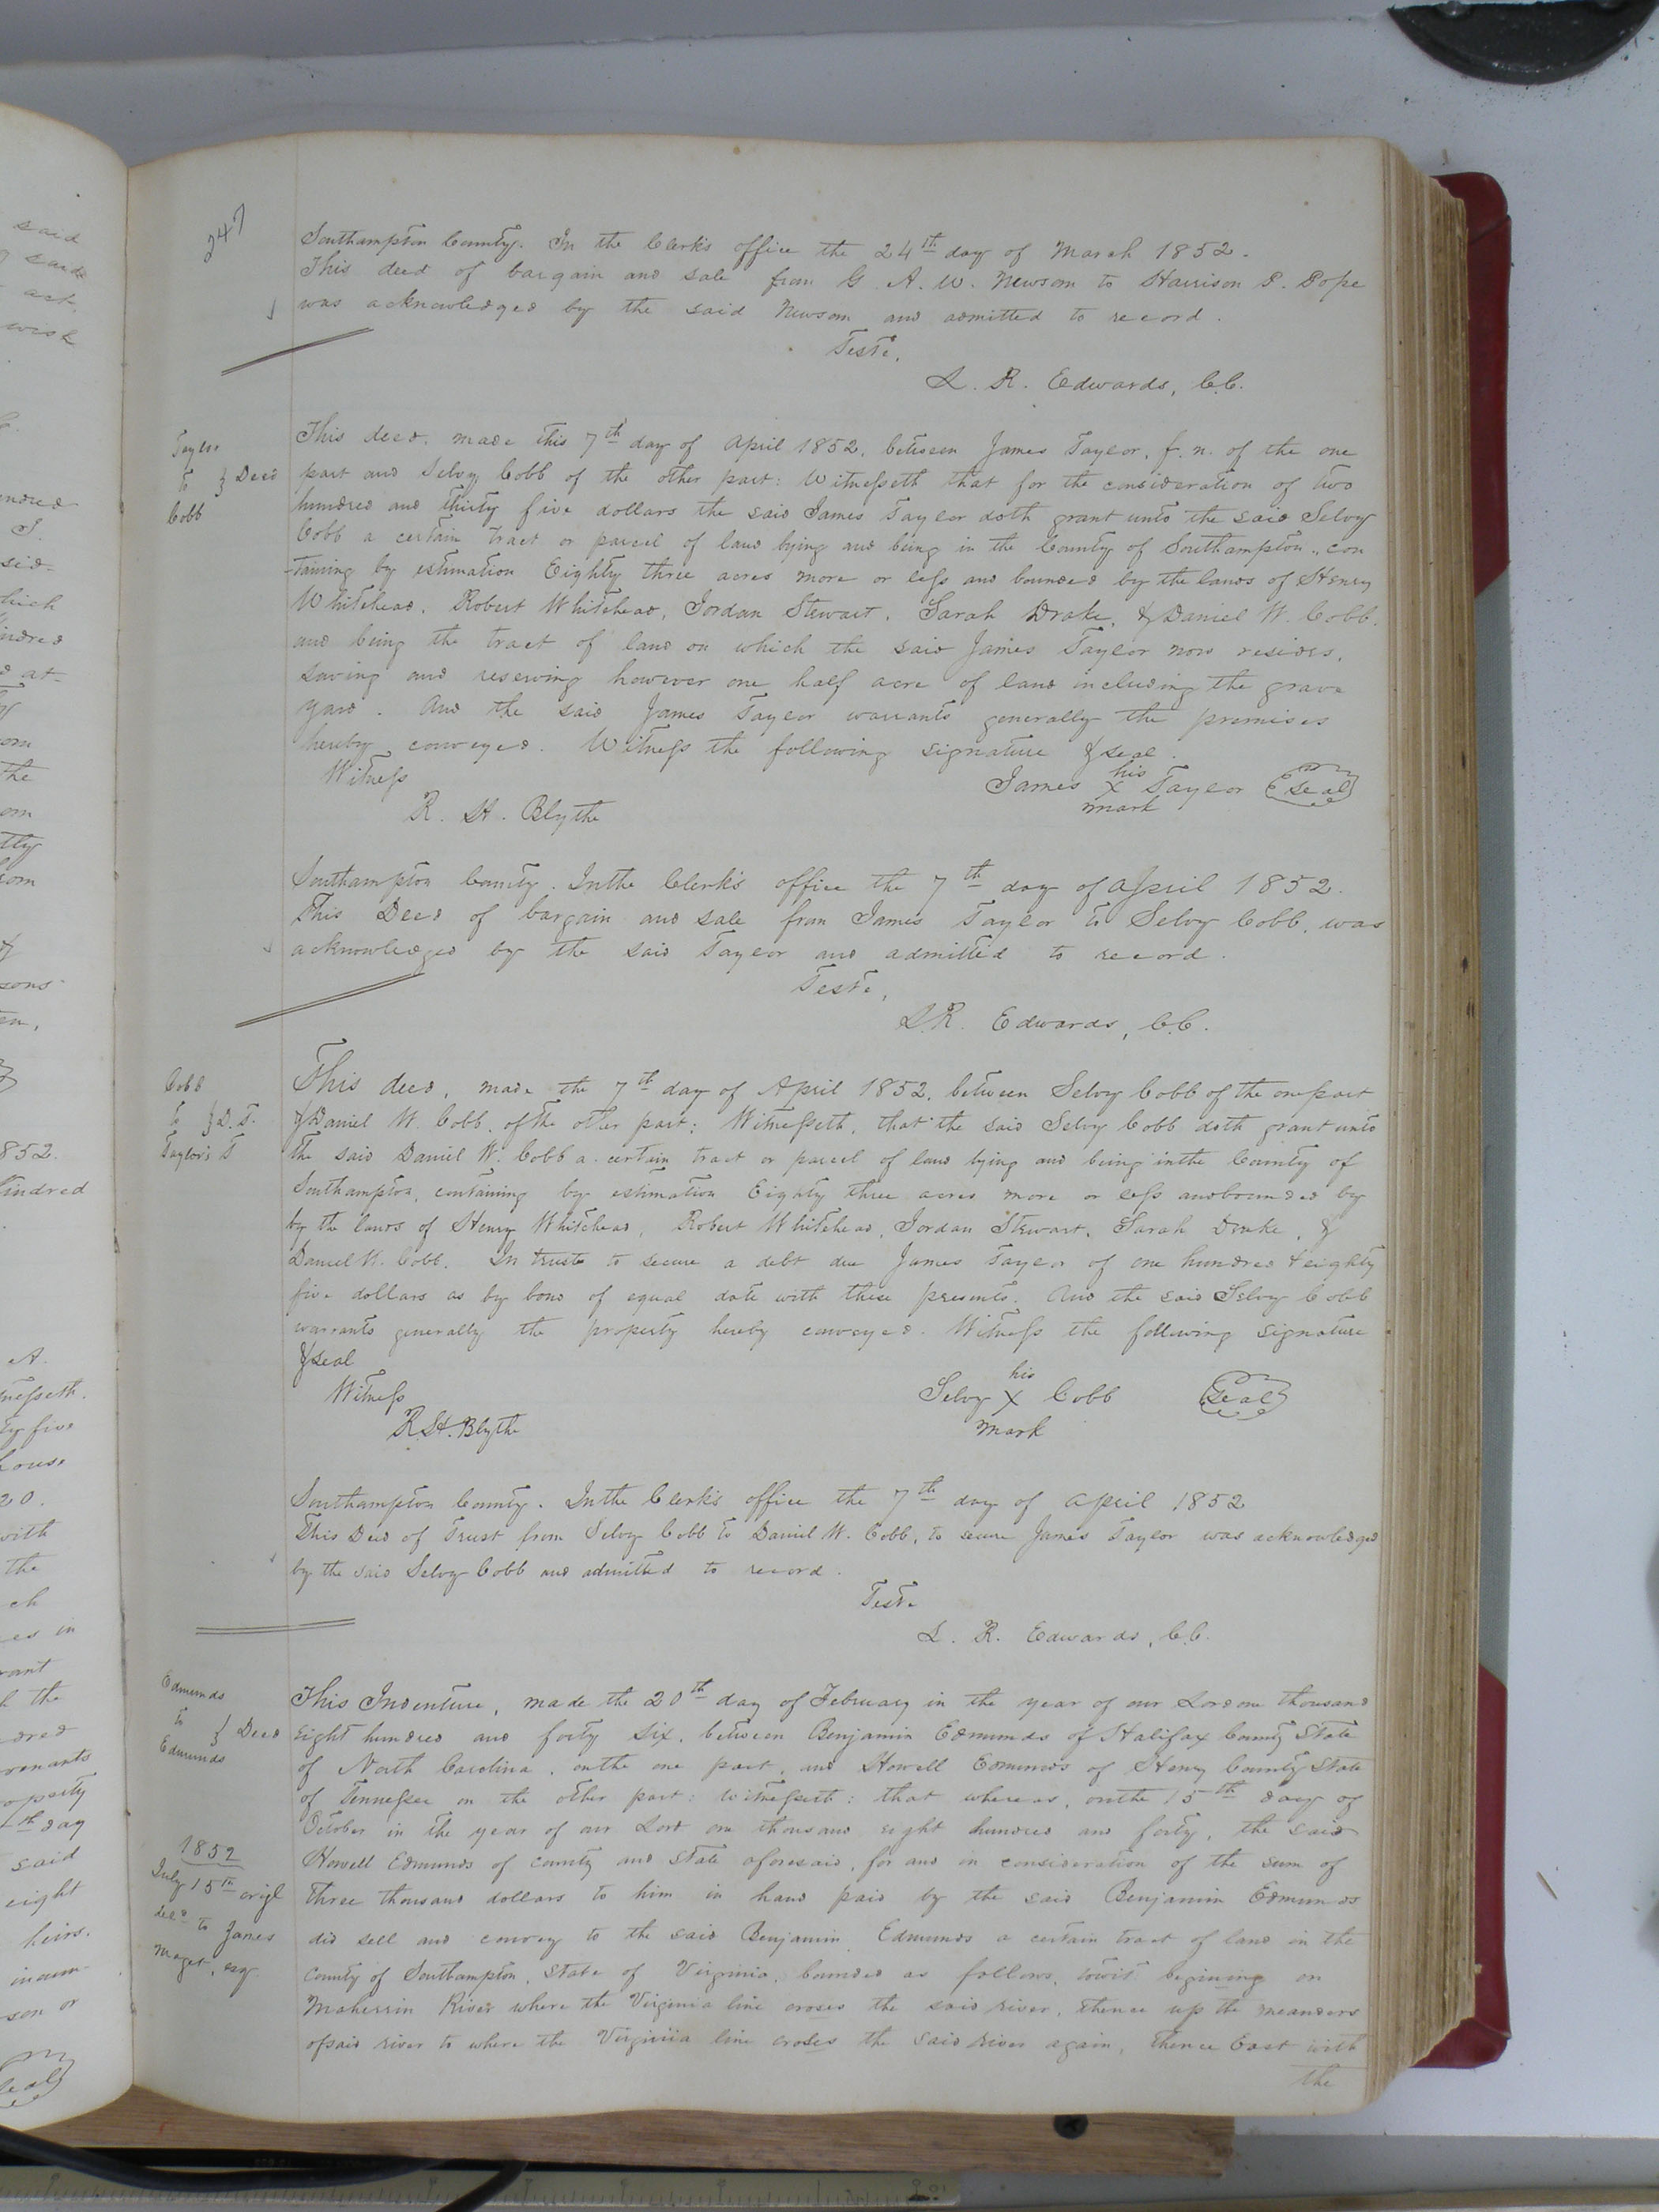 247
Southampton County. In the Clerk's office the 24th day of March 1852.
This deed of bargain and sale from G. A. W. Newsom to Harrison P. Pope
was acknowledged by the said Newsom and admitted to record.
Teste,
L. R. Edwards, C.C.
Taylor
to } Deed
Cobb
This deed, made this 7th day of April 1852, between James Taylor, f. n. of the one
part and Selvy Cobb of the other part: Witnesseth that for the consideration of two
hundred and thirty five dollars the said James Taylor doth grant unto the said Selvy
Cobb a certain tract or parcel of land lying and being in the County of Southampton, con
-taining by estimation Eighty three acres more or less and bounded by the lands of Henry
Whitehead, Robert Whitehead, Jordan Stewart, Sarah Drake, & Daniel W. Cobb.
and being the tract of land on which the said James Taylor now resides,
saving and reserving however one half acre of land including the grave
yard. And the said James Taylor warrants generally the premises
hereby conveyed. Witness the following signature & seal.
Witness
R. H. Blythe
James his X mark Taylor Seal
Southampton County. In the Clerk's office the 7th day of April 1852.
This Deed of bargain and sale from James Taylor to Selvy Cobb, was
acknowledged by the said Taylor and admitted to record.
Teste,
L. R. Edwards, C.C.
Cobb
to } D. T.
Taylor's T
This deed, made the 7th day of April 1852, between Selvy Cobb of the one part
& Daniel W. Cobb, of the other part: Witnesseth, that the said Selvy Cobb doth grant unto
the said Daniel W. Cobb a certain tract or parcel of land lying and being in the County of
Southampton, containing by estimation Eighty three acres more or less and bounded by
by the lands of Henry Whitehead, Robert Whitehead, Jordan Stewart, Sarah Drake, &
Daniel W. Cobb. In trust to secure a debt due James Taylor of one hundred & eighty
five dollars as by bond of equal date with these presents. And the said Selvy Cobb
warrants generally the property hereby conveyed. Witness the following signature
& seal
Witness
R. H. Blythe
Selvy his X mark Cobb Seal
Southampton County. In the Clerk's office the 7th day of April 1852
This Deed of Trust from Selvy Cobb to Daniel W. Cobb, to secure James Taylor was acknowledged
by the said Selvy Cobb and admitted to record.
Teste
L. R. Edwards, C.C.
Edmunds
to } Deed
Edmunds
1852
July 15th origl
deld to James
Maget, esq.
This Indenture, made the 20th day of February in the year of our Lord one thousand
eight hundred and forty six, between Benjamin Edmunds of Halifax County State
of North Carolina, on the one part, and Howell Edmunds of Henry County State
of Tennessee on the other part: witnesseth: that whereas, on the 15th day of
October in the year of our Lord one thousand eight hundred and forty, the said
Howell Edmunds of county and state aforesaid, for and in consideration of the sum of
three thousand dollars to him in hand paid by the said Benjamin Edmunds
did sell and convey to the said Benjamin Edmunds a certain tract of land in the
county of Southampton, State of Virginia, bounded as follows, towit begining on
Maherrin River where the Virginia line croses the said river, thence up the meanders
of said river to where the Virginia line croses the said river again, thence East with
the